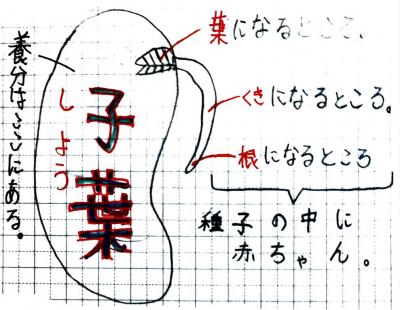 葉になるところ、
くきになるところ。
根になるところ
種子の中に
赤ちゃん。
子葉
しよう
養分はここにある。